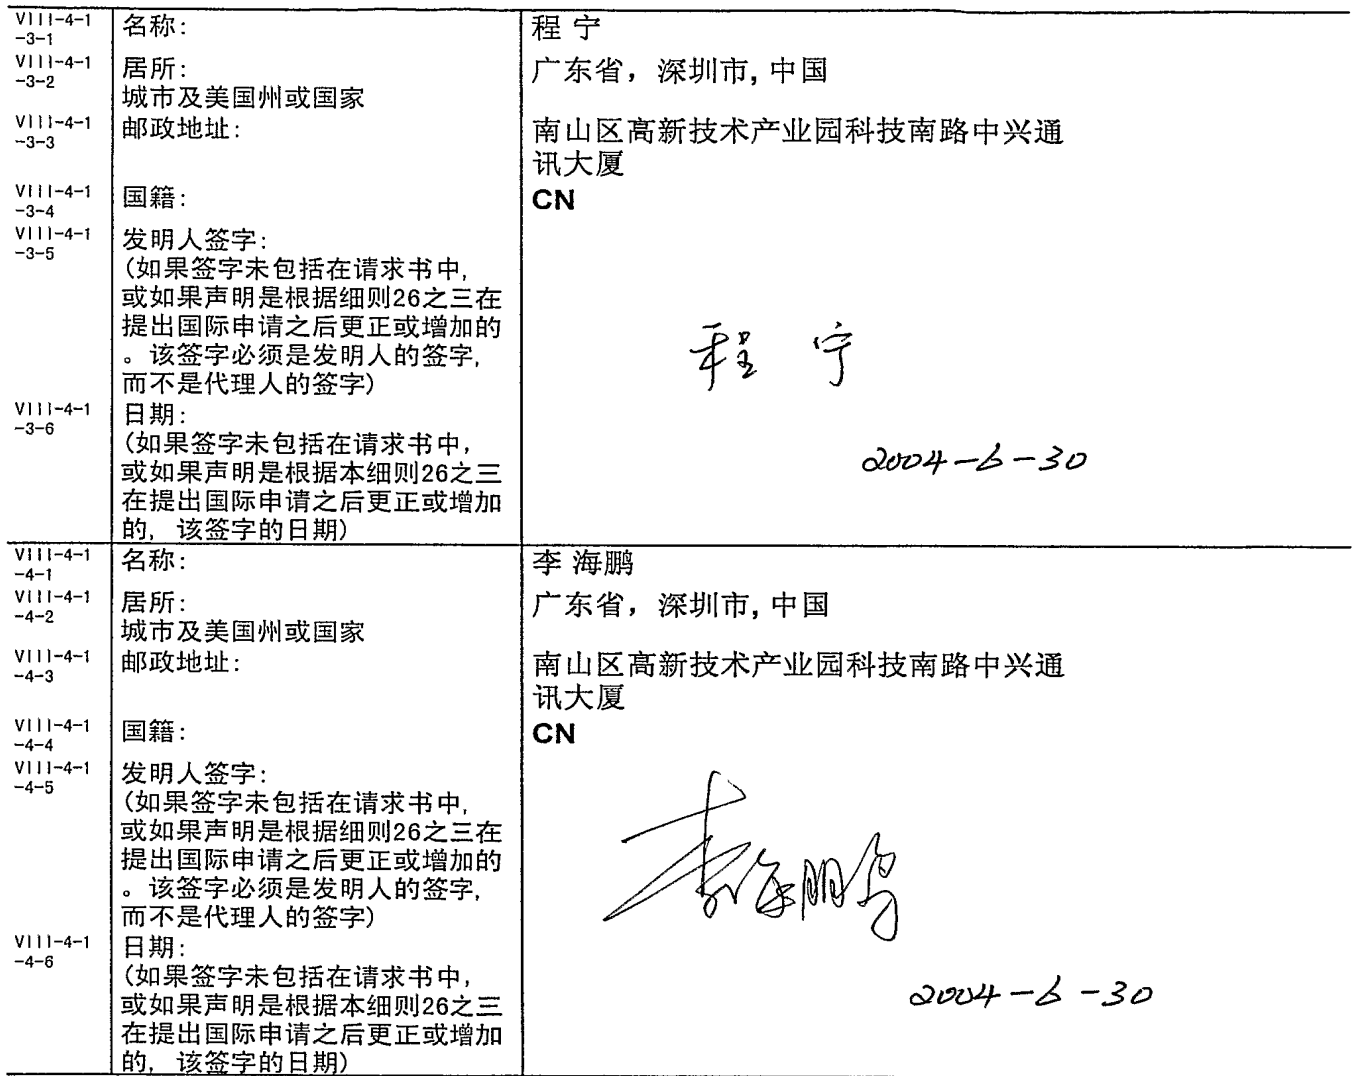 VIII-4-1 名称: 程 宁
-3-1
VIII-4-1 居所: 广东省，深圳市, 中国
-3-2
城市及美国州或国家
VIII-4-1 邮政地址: 南山区高新技术产业园科技南路中兴通
-3-3
讯大厦
VIII-4-1 国籍: CN
-3-4
VIII-4-1 发明人签字:
-3-5
(如果签字未包括在请求书中,
或如果声明是根据细则26之三在
提出国际申请之后更正或增加的
。该签字必须是发明人的签字,
而不是代理人的签字)
程 宁
VIII-4-1 日期:
-3-6
(如果签字未包括在请求书中,
或如果声明是根据本细则26之三
在提出国际申请之后更正或增加
的, 该签字的日期)
2004-6-30
VIII-4-1 名称: 李 海鹏
-4-1
VIII-4-1 居所: 广东省，深圳市, 中国
-4-2
城市及美国州或国家
VIII-4-1 邮政地址: 南山区高新技术产业园科技南路中兴通
-4-3
讯大厦
VIII-4-1 国籍: CN
-4-4
VIII-4-1 发明人签字:
-4-5
(如果签字未包括在请求书中,
或如果声明是根据细则26之三在
提出国际申请之后更正或增加的
。该签字必须是发明人的签字,
而不是代理人的签字)
李海鹏
VIII-4-1 日期:
-4-6
(如果签字未包括在请求书中,
或如果声明是根据本细则26之三
在提出国际申请之后更正或增加
的, 该签字的日期)
2004-6-30